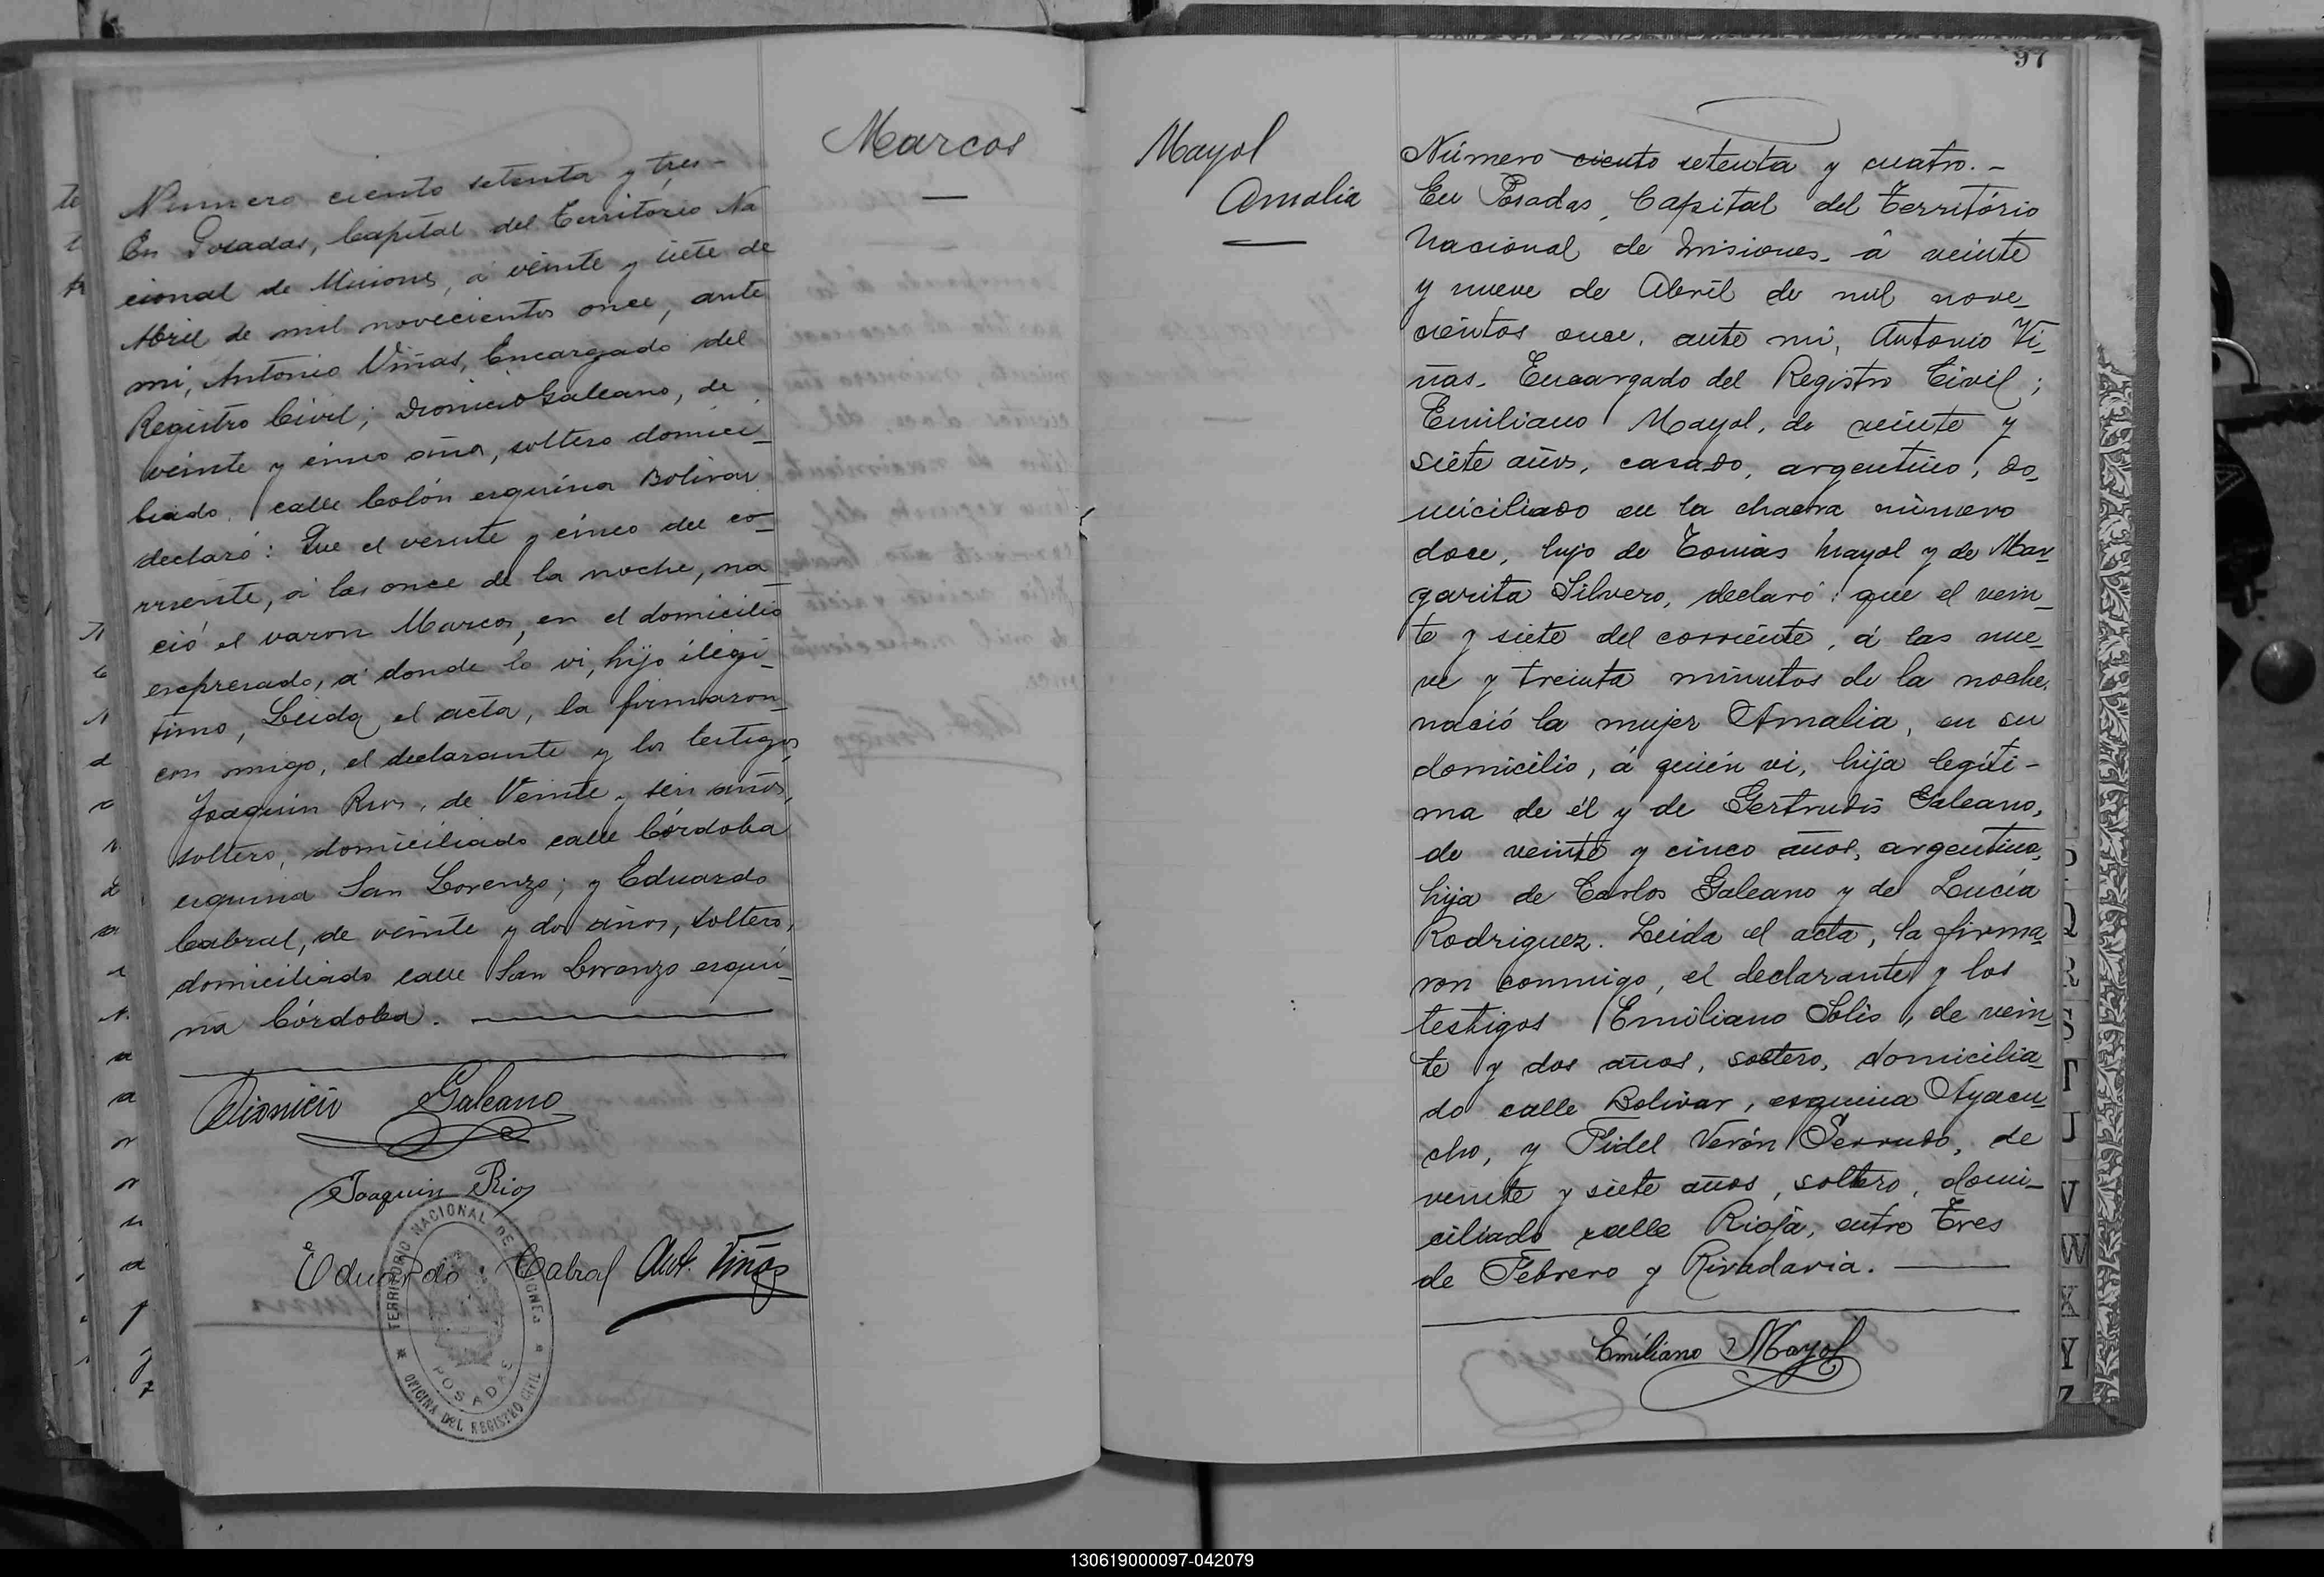 Marcos
Número ciento setenta y tres -
En Posadas, Capital del Territorio Na
cional de Misiones, á veinte y siete de
Abril de mil novecientos once, ante
mi, Antonio Viñas, Encargado del
Registro Civil; Dionicio Galeano, de
veinte y cinco años, soltero domici_
liado, calle Colón esquina Bolivar
declaró: Que el veinte y cinco del co_
rriente, á las once de la noche, na_
ció el varon Marcos, en el domicilio
expresado, á donde lo vi, hijo ilegi_
timo, Leida el acta, la firmaron_
con migo, el declarante y los testigos,
Joaquin Rios, de Veinte y seis años,
soltero, domiciliado calle Córdoba
esquina San Lorenzo; y Eduardo
Cabral, de veinte y dos años, soltero,
domiciliado calle San Lorenzo esqui_
na Córdoba.
Dionicio Galeano
Joaquin Rios
Eduardo Cabral Ant. Viñas
TERRITORIO NACIONAL DE MISIONES
POSADAS
OFICINA DEL REGISTRO CIVIL
97
Mayol
Amalia
Número ciento setenta y cuatro. -
En Posadas, Capital del Território
Nacional de Misiones, á veinte
y nueve de Abril de mil nove_
cientos once, ante mi, Antonio Vi_
ñas, Encargado del Registro Civil;
Emiliano Mayol, de veinte y
siete años, casado, argentino, do_
miciliado en la chacra número
doce, hijo de Tomás Mayol y de Mar_
garita Silvero, declaró: que el vein_
te y siete del corriente, á las nue_
ve y treinta minutos de la noche,
nació la mujer Amalia, en su
domicilio, á quién vi, hija legíti-
ma de él y de Gertrudis Galeano,
de veinte y cinco años, argentina,
hija de Carlos Galeano y de Lucía
Rodriguez. Leida el acta, la firma_
ron conmigo, el declarante y los
testigos Emiliano Solis, de vein_
te y dos años, soltero, domicilia_
do calle Bolivar, esquina Ayacu_
cho, y Fidel Verón Serrudo, de
veinte y siete años, soltero, domi_
ciliado calle Rioja, entre Tres
de Febrero y Rivadavia.
Emiliano Mayol
P
Q
R
S
T
U
V
W
X
Y
Z
130619000097-042079